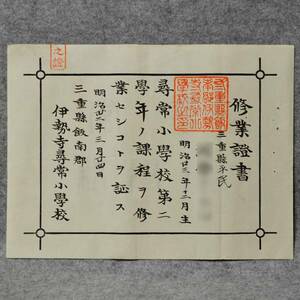 修業證書
三重縣平民
明治廿三年十二月生
尋常小學校第二
學年ノ課程ヲ修
業セシコトヲ証ス
明治卅二年三月廿四日
三重縣飯南郡
伊勢寺尋常小學校
之證